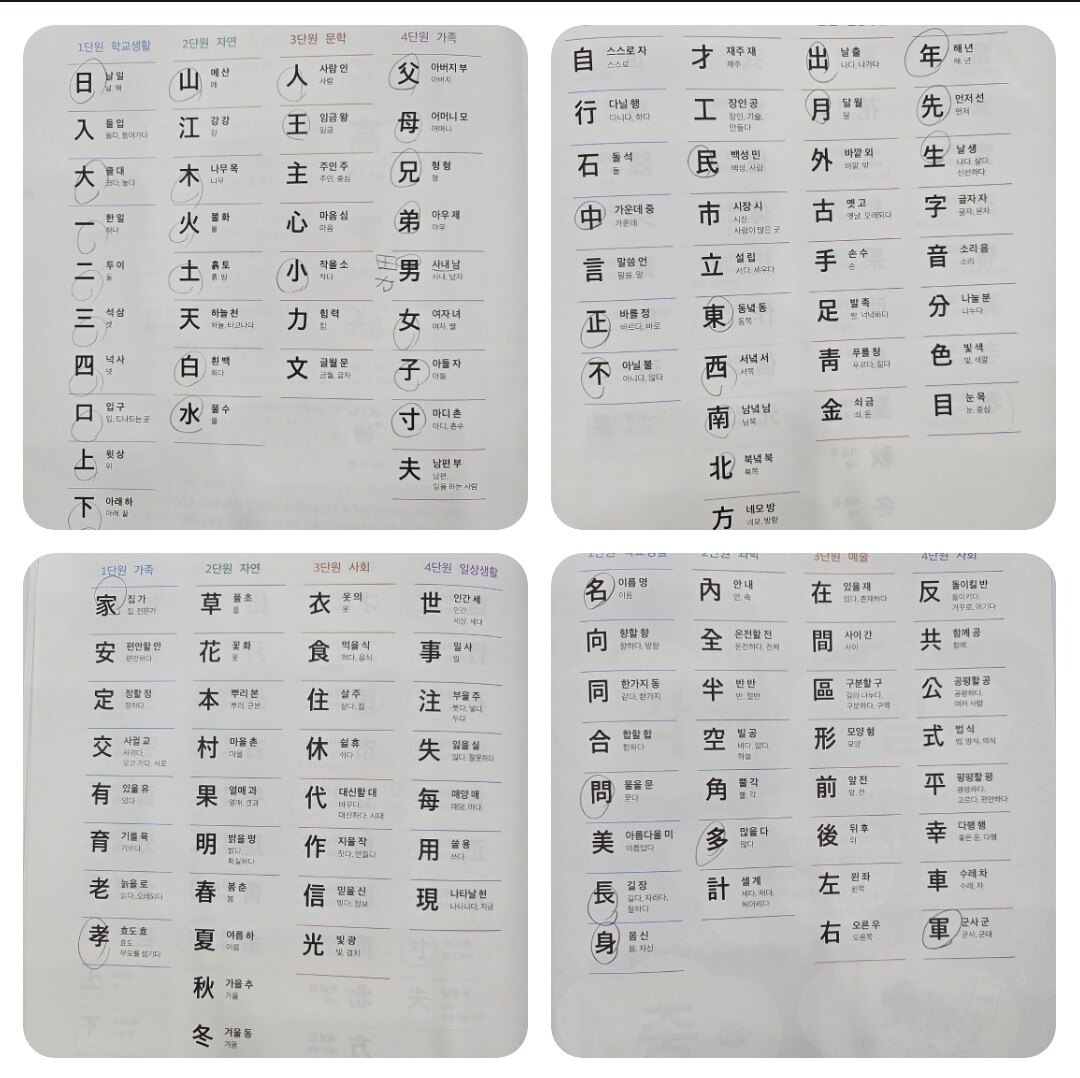 1단원 학교생활
日 날 일
날, 해
入 들 입
들다, 들어가다
大 클 대
크다, 높다
一 한 일
하나
二 두 이
둘
三 석 삼
셋
四 넉 사
넷
口 입 구
입, 드나드는 곳
上 윗 상
위
下 아래 하
아래, 끝
2단원 자연
山 메 산
메
江 강 강
강
木 나무 목
나무
火 불 화
불
土 흙 토
흙, 땅
天 하늘 천
하늘, 타고나다
白 흰 백
희다
水 물 수
물
3단원 문학
人 사람 인
사람
王 임금 왕
임금
主 주인 주
주인, 중심
心 마음 심
마음
小 작을 소
작다
力 힘 력
힘
文 글월 문
글월, 글자
4단원 가족
父 아버지 부
아버지
母 어머니 모
어머니
兄 형 형
형
弟 아우 제
아우
男 사내 남
사내, 남자
女 여자 녀
여자, 딸
子 아들 자
아들
寸 마디 촌
마디, 촌수
夫 남편 부
남편,
일을 하는 사람
自 스스로 자
스스로
行 다닐 행
다니다, 하다
石 돌 석
돌
中 가운데 중
가운데
言 말씀 언
말씀, 말
正 바를 정
바르다, 바로
不 아닐 불
아니다, 않다
才 재주 재
재주
工 장인 공
장인, 기술,
만들다
民 백성 민
백성, 사람
市 시장 시
시장,
사람이 많은 곳
立 설 립
서다, 세우다
東 동녘 동
동쪽
西 서녘 서
서쪽
南 남녘 남
남쪽
北 북녘 북
북쪽
方 네모 방
네모, 방향
出 날 출
나다, 나가다
月 달 월
달
外 바깥 외
바깥, 밖
古 옛 고
옛날, 오래되다
手 손 수
손
足 발 족
발, 넉넉하다
靑 푸를 청
푸르다, 젊다
金 쇠 금
쇠, 돈
年 해 년
해, 년
先 먼저 선
먼저
生 날 생
나다, 살다,
신선하다
字 글자 자
글자, 문자
音 소리 음
소리
分 나눌 분
나누다
色 빛 색
빛, 색깔
目 눈 목
눈, 중심
1단원 가족
家 집 가
집, 전문가
安 편안할 안
편안하다
定 정할 정
정하다
交 사귈 교
사귀다,
오고 가다, 서로
有 있을 유
있다
育 기를 육
기르다
老 늙을 로
늙다, 오래되다
孝 효도 효
효도,
부모를 섬기다
2단원 자연
草 풀 초
풀
花 꽃 화
꽃
本 뿌리 본
뿌리, 근본
村 마을 촌
마을
果 열매 과
열매, 결과
明 밝을 명
밝다,
확실하다
春 봄 춘
봄
夏 여름 하
여름
秋 가을 추
가을
冬 겨울 동
겨울
3단원 사회
衣 옷 의
옷
食 먹을 식
먹다, 음식
住 살 주
살다, 집
休 쉴 휴
쉬다
代 대신할 대
바꾸다,
대신하다, 시대
作 지을 작
짓다, 만들다
信 믿을 신
믿다, 정보
光 빛 광
빛, 경치
4단원 일상생활
世 인간 세
인간,
세상, 세대
事 일 사
일
注 부을 주
붓다, 넣다,
두다
失 잃을 실
잃다, 잘못하다
每 매양 매
매양, 마다
用 쓸 용
쓰다
現 나타날 현
나타나다, 지금
1단원 학교생활
名 이름 명
이름
向 향할 향
향하다, 방향
同 한가지 동
같다, 한가지
合 합할 합
합하다
問 물을 문
묻다
美 아름다울 미
아름답다
長 길 장
길다, 자라다,
잘하다
身 몸 신
몸, 자신
2단원 과학
內 안 내
안, 속
全 온전할 전
온전하다, 전체
半 반 반
반, 절반
空 빌 공
비다, 없다,
하늘
角 뿔 각
뿔, 각
多 많을 다
많다
計 셀 계
세다, 재다,
헤아리다
3단원 예술
在 있을 재
있다, 존재하다
間 사이 간
사이
區 구분할 구
갈라 나누다,
구분하다, 구역
形 모양 형
모양
前 앞 전
앞, 전
後 뒤 후
뒤
左 왼 좌
왼쪽
右 오른 우
오른쪽
4단원 사회
反 돌이킬 반
돌이키다,
거꾸로, 어기다
共 함께 공
함께
公 공평할 공
공평하다,
여러 사람
式 법 식
법, 방식, 의식
平 평평할 평
평평하다,
고르다, 편안하다
幸 다행 행
좋은 운, 다행
車 수레 차
수레, 차
軍 군사 군
군사, 군대